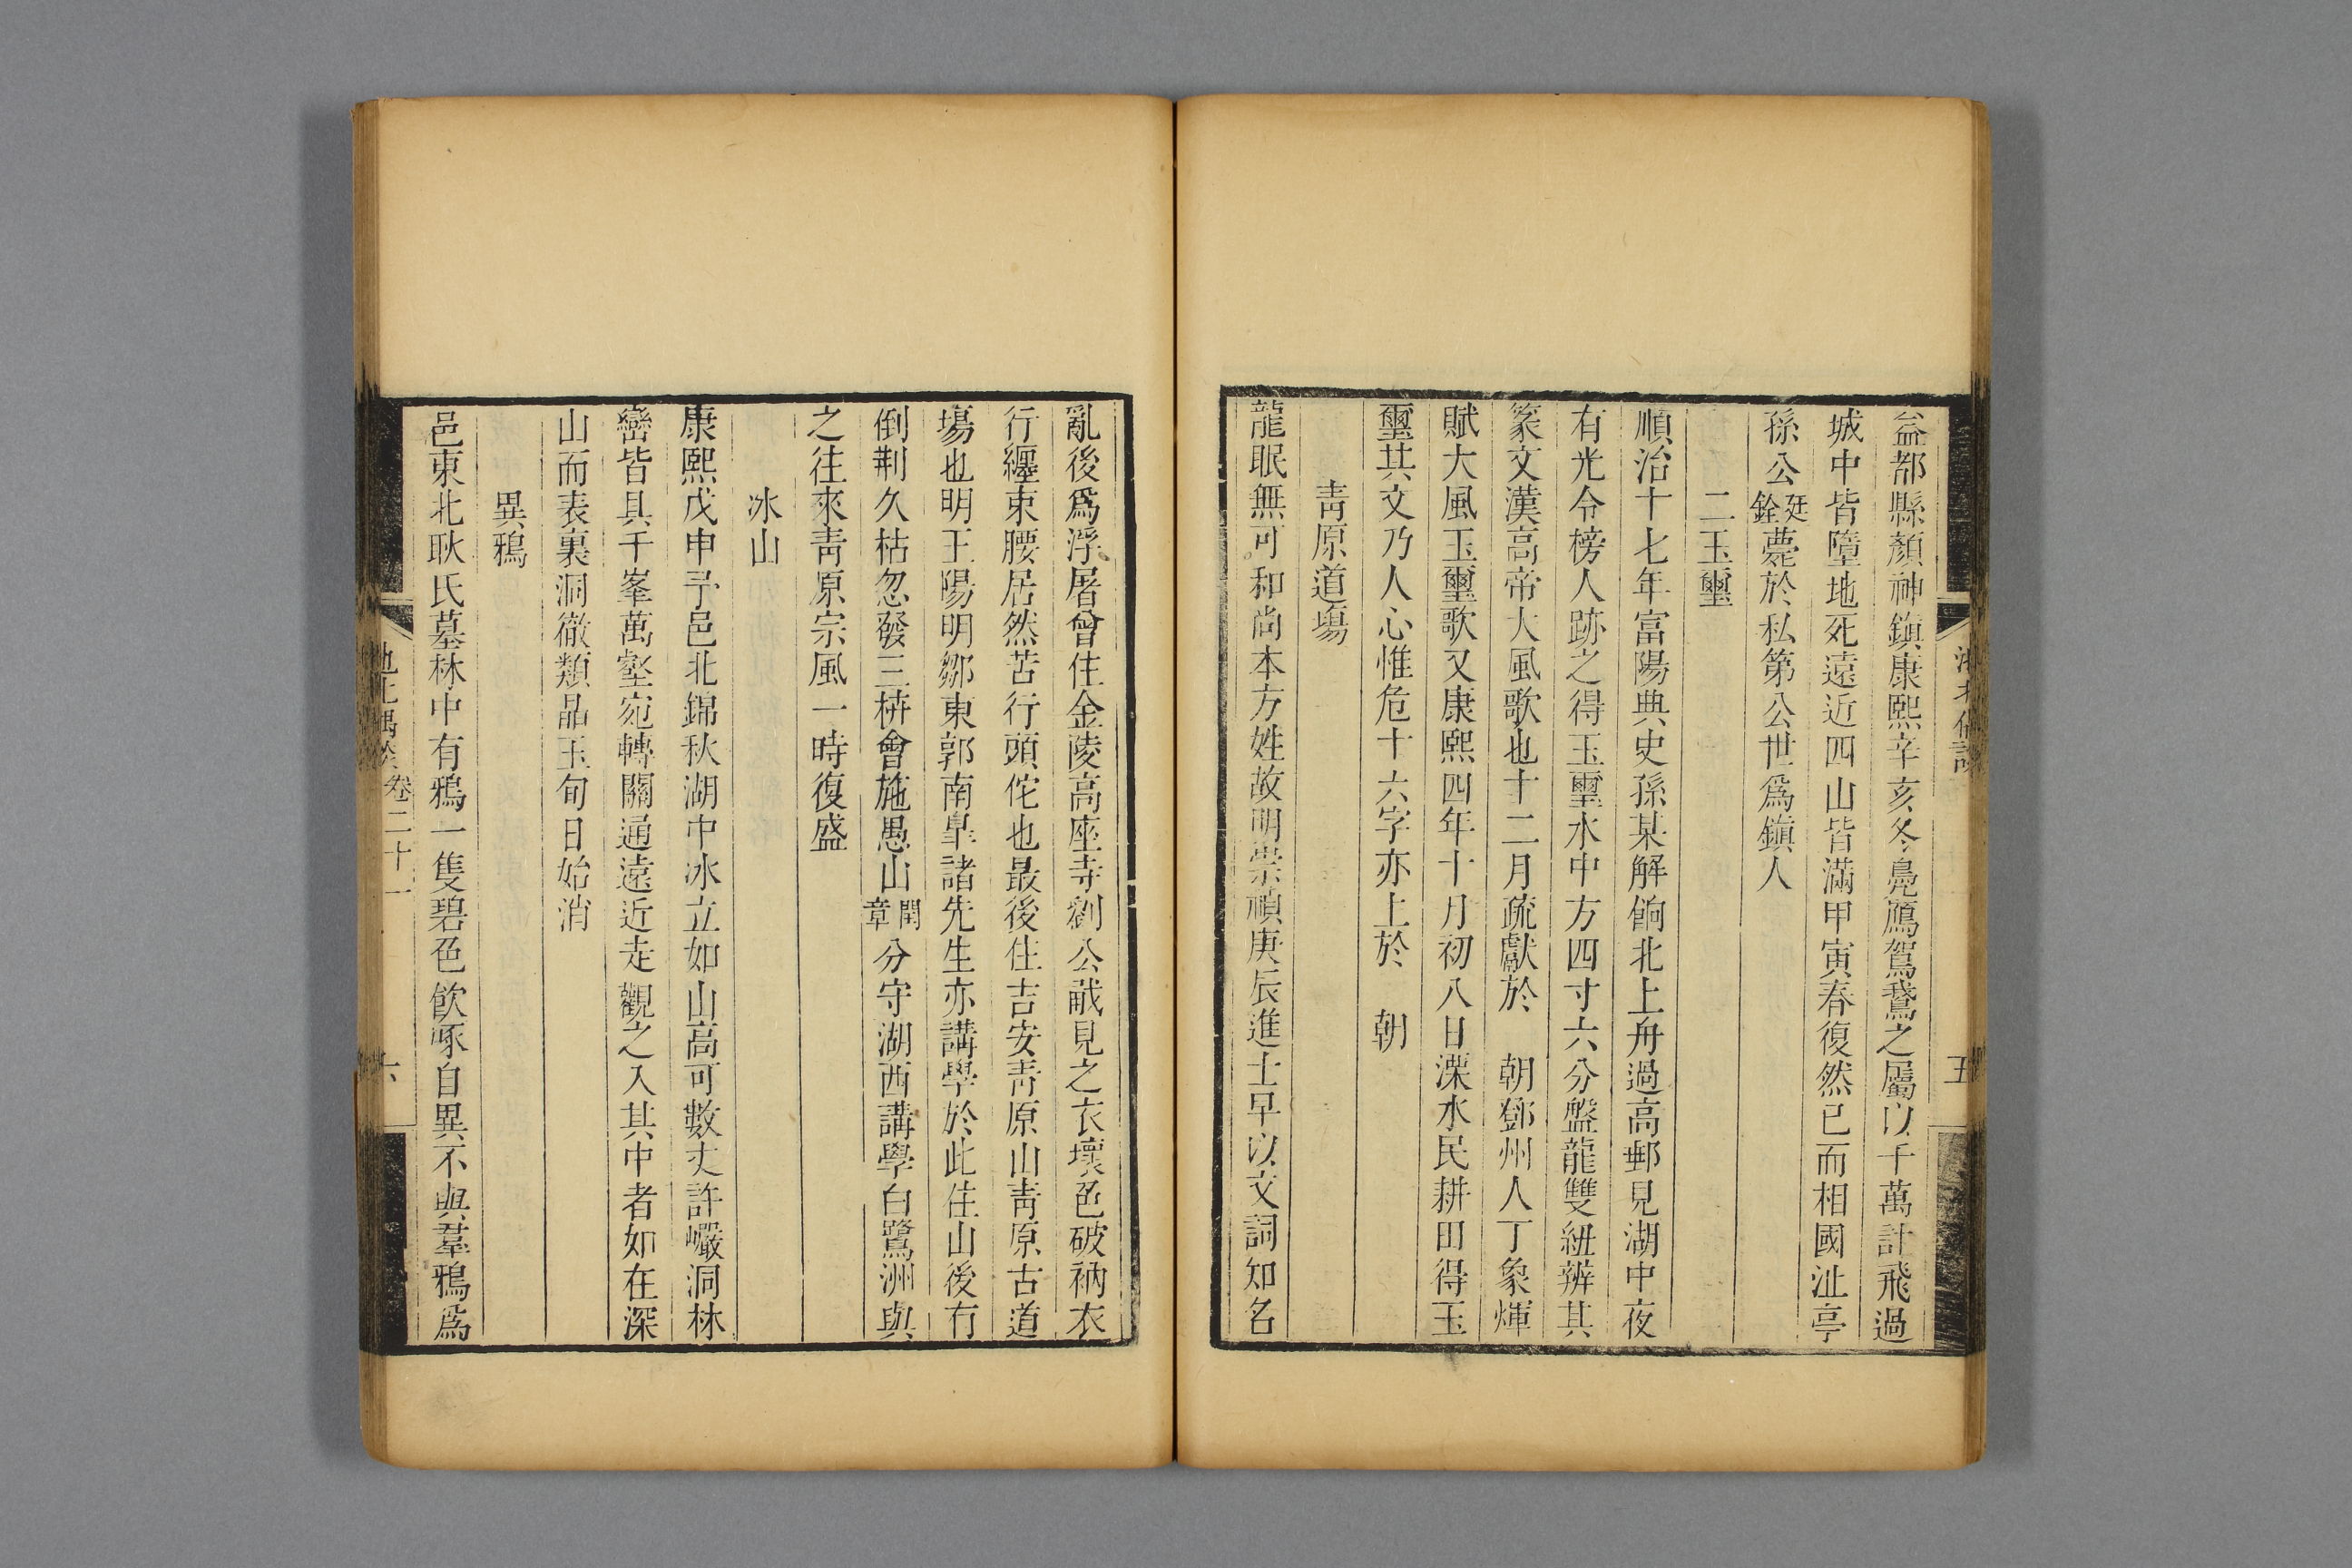 益都縣顏神鎮康熙辛亥冬鳧鴈駕鵞之屬以千萬計飛過
城中皆墮地死遠近四山皆滿甲寅春復然已而相國沚亭
孫公廷銓薨於私第公世爲鎮人
二玉璽
順治十七年富陽典史孫某解餉北上舟過高郵見湖中夜
有光令榜人跡之得玉璽水中方四寸六分盤龍雙紐辨其
篆文漢高帝大風歌也十二月疏獻於　朝鄧州人丁象煇
賦大風玉璽歌又康熙四年十月初八日溧水民耕田得玉
璽其文乃人心惟危十六字亦上於　朝
青原道場
龍眠無可和尚本方姓故明崇禎庚辰進士早以文詞知名
亂後爲浮屠曾住金陵高座寺劉公㦷見之衣壞色破衲衣
行纏束腰居然苦行頭佗也最後住吉安青原山青原古道
場也明王陽明鄒東郭南臯諸先生亦講學於此住山後有
倒荆久枯忽發三枿會施愚山閏章分守湖西講學白鷺洲與
之往來青原宗風一時復盛
冰山
康熙戊申予邑北錦秋湖中冰立如山高可數丈許巖洞林
巒皆具千峯萬壑宛轉關通遠近走觀之入其中者如在深
山而表裏洞徹類晶玉旬日始消
異鴉
邑東北耿氏墓林中有鴉一隻碧色飲啄自異不與羣鴉爲
池北偶談
卷二十一
六
五